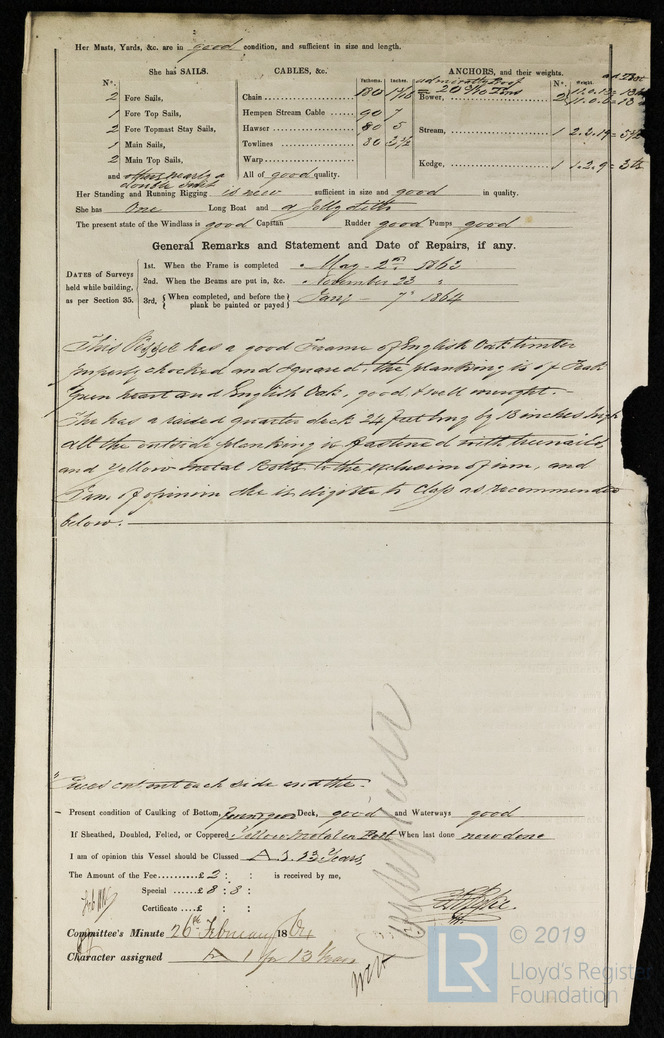 Her Masts, Yards, &c. are in good condition, and sufficient in size and length.
She has SAILS.
N°.
2 Fore Sails,
1 Fore Top Sails,
2 Fore Topmast Stay Sails,
1 Main Sails,
2 Main Top Sails,
and others nearly a
double suit
CABLES, &c.
Fathoms. Inches.
Chain 180
Hempen Stream Cable 90 7
Hawser 80 5
Towlines 80 2½
Warp
All of good quality.
ANCHORS, and their weights.
N°. Weight.
Admiralty Proof
Bower, 2
Stream, 1 2.2.14
Kedge, 1 1.2.9
Her Standing and Running Rigging is new sufficient in size and good in quality.
She has One Long Boat and a Jolly ditto
The present state of the Windlass is good Capstan Rudder good Pumps good
General Remarks and Statement and Date of Repairs, if any.
DATES of Surveys
held while building,
as per Section 35.
1st. When the Frame is completed May 2nd 1863
2nd. When the Beams are put in, &c. November 23 "
3rd, { When completed, and before the
plank be painted or payed } Jany 7 1864
This Vessel has a good Frame of English Oak timber
properly chocked and squared, the planking is of Teak
Green heart and English Oak, good & well wrought.
She has a raised quarter deck 24 feet long by 18 inches high
all the outside planking is fastened with treenails
and Yellow Metal Bolts to the exclusion of iron, and
I am of opinion she is eligible to Class as recommended
below.
Pieces cut out each side and the
Present condition of Caulking of Bottom, Deck, good and Waterways good
If Sheathed, Doubled, Felted, or Coppered Yellow Metal on Felt When last done new done
I am of opinion this Vessel should be Classed A.1. 13 Years
The Amount of the Fee £ 2 : : is received by me,
Special £ 8 : 8 :
Certificate £ : :
Committee's Minute 26th February 1864
Character assigned A 1 for 13 Years
© 2019
LR
Lloyd's Register
Foundation